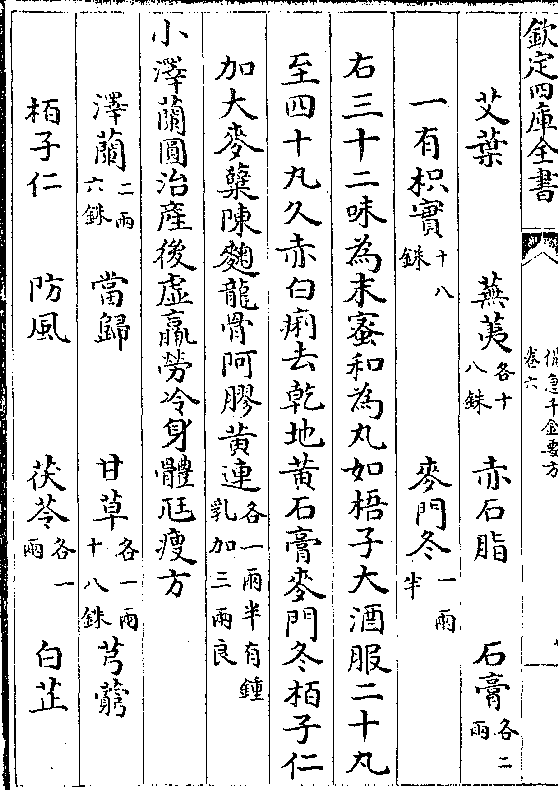 欽定四庫全書
備急千金要方
卷六
艾葉 蕪荑各十八銖 赤石脂 石膏各二兩
一有枳實十八銖 麥門冬一兩半
右三十二味為末蜜和為丸如梧子大酒服二十丸
至四十丸久赤白痢去乾地黄石膏麥門冬栢子仁
加大麥糵陳麴龍骨阿膠黄連各一兩半有鍾乳加三兩良
小澤蘭圓治產後虚羸勞冷身體尫瘦方
澤蘭二兩六銖 當歸 甘草各一兩十八銖 芎藭
栢子仁 防風 茯苓各一兩 白芷